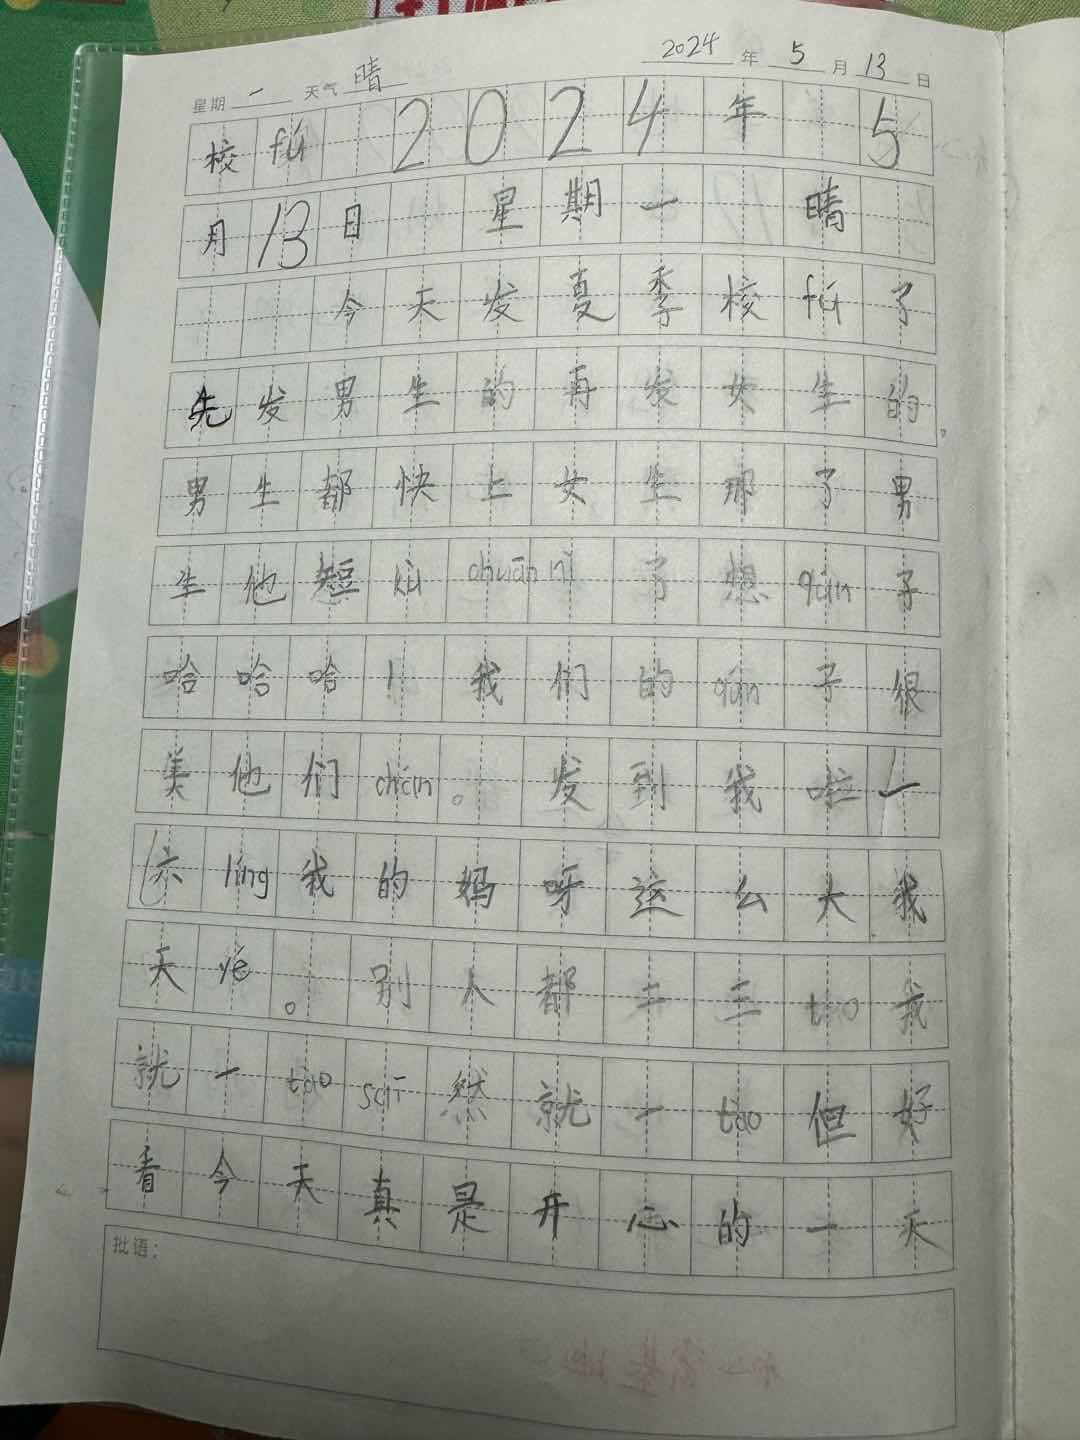 2024年5月13日
星期一 天气晴
校fú 2024年 5
月13日 星期一 晴
今天发夏季校fú了
先发男生的再发女生的。
男生都快上女生那了男
生他短kù chuān nì了想qún子
哈哈哈！我们的qún子很
美他们chuān。发到我啦一
六líng我的妈呀这么大我
天yé。别人都二三tào我
就一tào suī然就一tào但好
看今天真是开心的一天
批语：